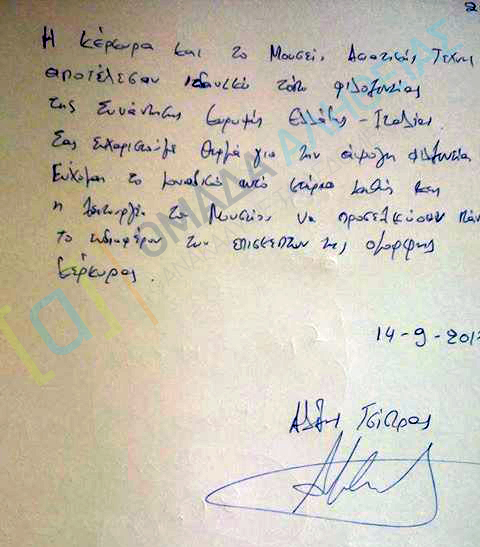 Η Κέρκυρα και το Μουσείο Ασιατικής Τέχνης
αποτέλεσαν ιδανικό τόπο φιλοξενίας
της Συνάντησης Κορυφής Ελλάδας - Ιταλίας.
Σας ευχαριστούμε θερμά για την άψογη φιλοξενία
Εύχομαι το μοναδικό αυτό κτίριο καθώς και
η λειτουργία του Μουσείου να προσελκύσουν πάν
το ενδιαφέρον των επισκεπτών της όμορφης
Κέρκυρας.
14-9-201
Τσίπρας
ΟΜΑΔΑ ΑΛΗΘΕΙΑΣ